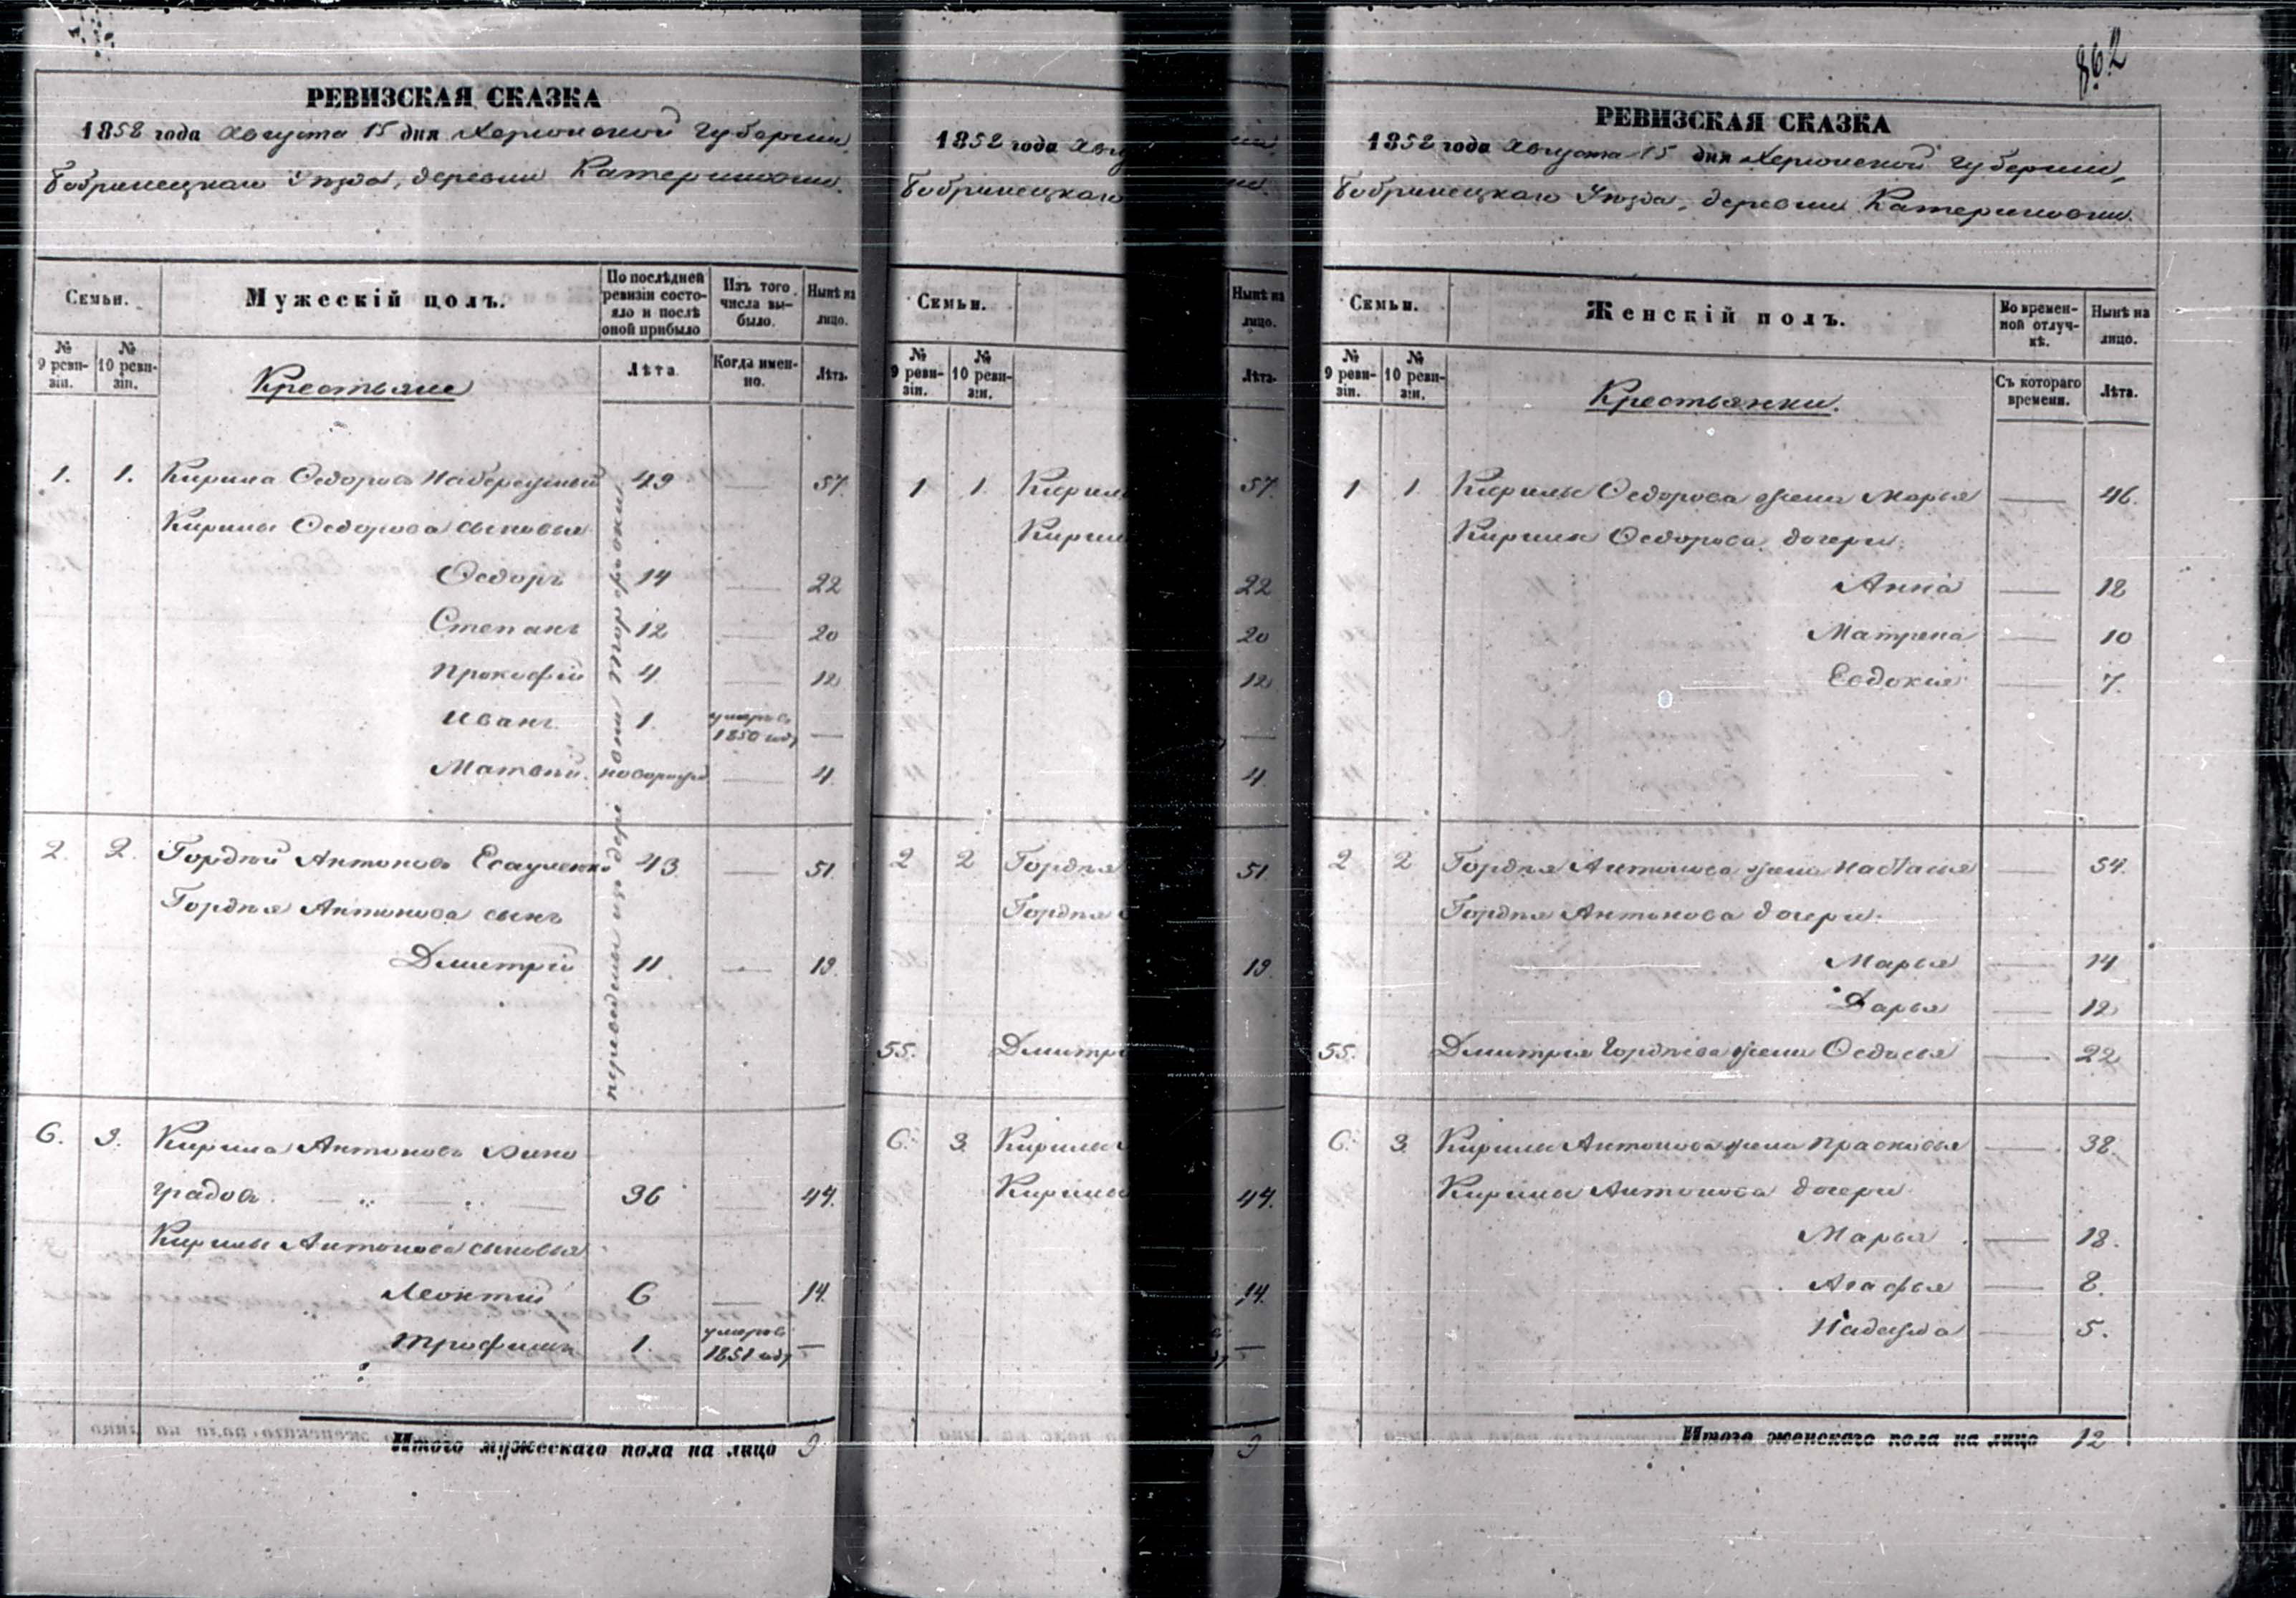 РЕВИЗСКАЯ СКАЗКА
1858 года Августа 15 дня Херсонской Губернии,
Бобринецкаго Уѣзда, деревни Катериновки.
Семьи.
Мужескій полъ.
По послѣдней ревизіи состояло и послѣ оной прибыло
Изъ того числа выбыло.
Нынѣ на лицо.
№ 9 ревизіи.
№ 10 ревизіи.
Крестьяне
Лѣта
Когда именно.
Лѣта.
1. 1. Кирила Ѳедоровъ Набережный 49 — 57.
Кирилы Ѳедорова сыновья
Ѳедоръ 14 — 22
Степанъ 12 — 20
Прокофій 4 — 12
Иванъ 1. умеръ въ 1850 году —
Матвѣй. новорожд — 4.
переведены изъ дер:
2. 2. Гордѣй Антоновъ Есауленко 43 — 51.
Гордѣя Антонова сынъ
Дмитрій 11 — 19.
6. 3. Кирила Антоновъ Вино
градовъ 36 — 44.
Кирилы Антонова сыновья
Леонтій 6 — 14.
Трофимъ 1. умеръ въ 1851 году —
Итого мужескаго пола на лицо 9
1858 года Авгу
Бобринецкаго
Семьи.
Нынѣ на лицо.
№ 9 ревизіи.
№ 10 ревизіи.
Лѣта.
1 1. Кирил 57.
Кирил
22
20
12
—
4.
2 2 Гордѣя 51.
Гордѣя
19
55. Дмитрі
6. 3. Кирилы
Кирилы 44.
14.
9
862
РЕВИЗСКАЯ СКАЗКА
1858 года Августа 15 дня Херсонской Губерніи,
Бобринецкаго Уѣзда, деревни Катериновки.
Семьи.
Женскій полъ.
Во временной отлучкѣ.
Нынѣ на лицо.
№ 9 ревизіи.
№ 10 ревизіи.
Крестьянки.
Съ котораго времени.
Лѣта.
1 1. Кирилы Ѳедорова жена Марья — 46.
Кирилы Ѳедорова дочери:
Анна — 12
Матрена — 10
Евдокія — 7.
2 2 Гордѣя Антонова жена Настасья — 54.
Гордѣя Антонова дочери:
Марья — 14
Дарья — 12
55. Дмитрія Гордѣева жена Ѳедосья — 22
6. 3. Кирилы Антонова жена Прасковья — 38.
Кирилы Антонова дочери
Марья — 18.
Агафья — 8.
Надежда — 5.
Итого женскаго пола на лицо 12